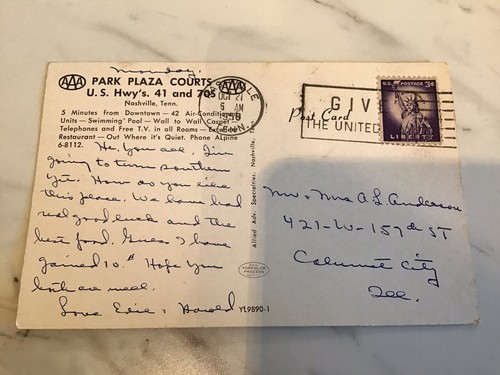 Monday.
AAA PARK PLAZA COURTS AAA
U.S. Hwy's. 41 and 70S
Nashville, Tenn.
5 Minutes from Downtown — 42 Air-Conditioned
Units — Swimming Pool — Wall to Wall Carpet —
Telephones and Free T.V. in all Rooms — Excellent
Restaurant — Out Where it's Quiet. Phone Alpine
6-8112.
Hi, you all. I'm
going to turn southern
yet. How do you like
this place. We have had
real good luck and the
best food. Guess I have
gained 10 #. Hope you
both are well.
Love Evie & Harold
Allied Adv. Specialties, Nashville, T
YL9890-1
OCT 21
6 AM
1958
TENN.
Post Card
GIV
THE UNITED
U.S. POSTAGE 3¢
LIBERTY
Mr & Mrs A L Anderson
421-W-157th ST
Calumet City
Ill.